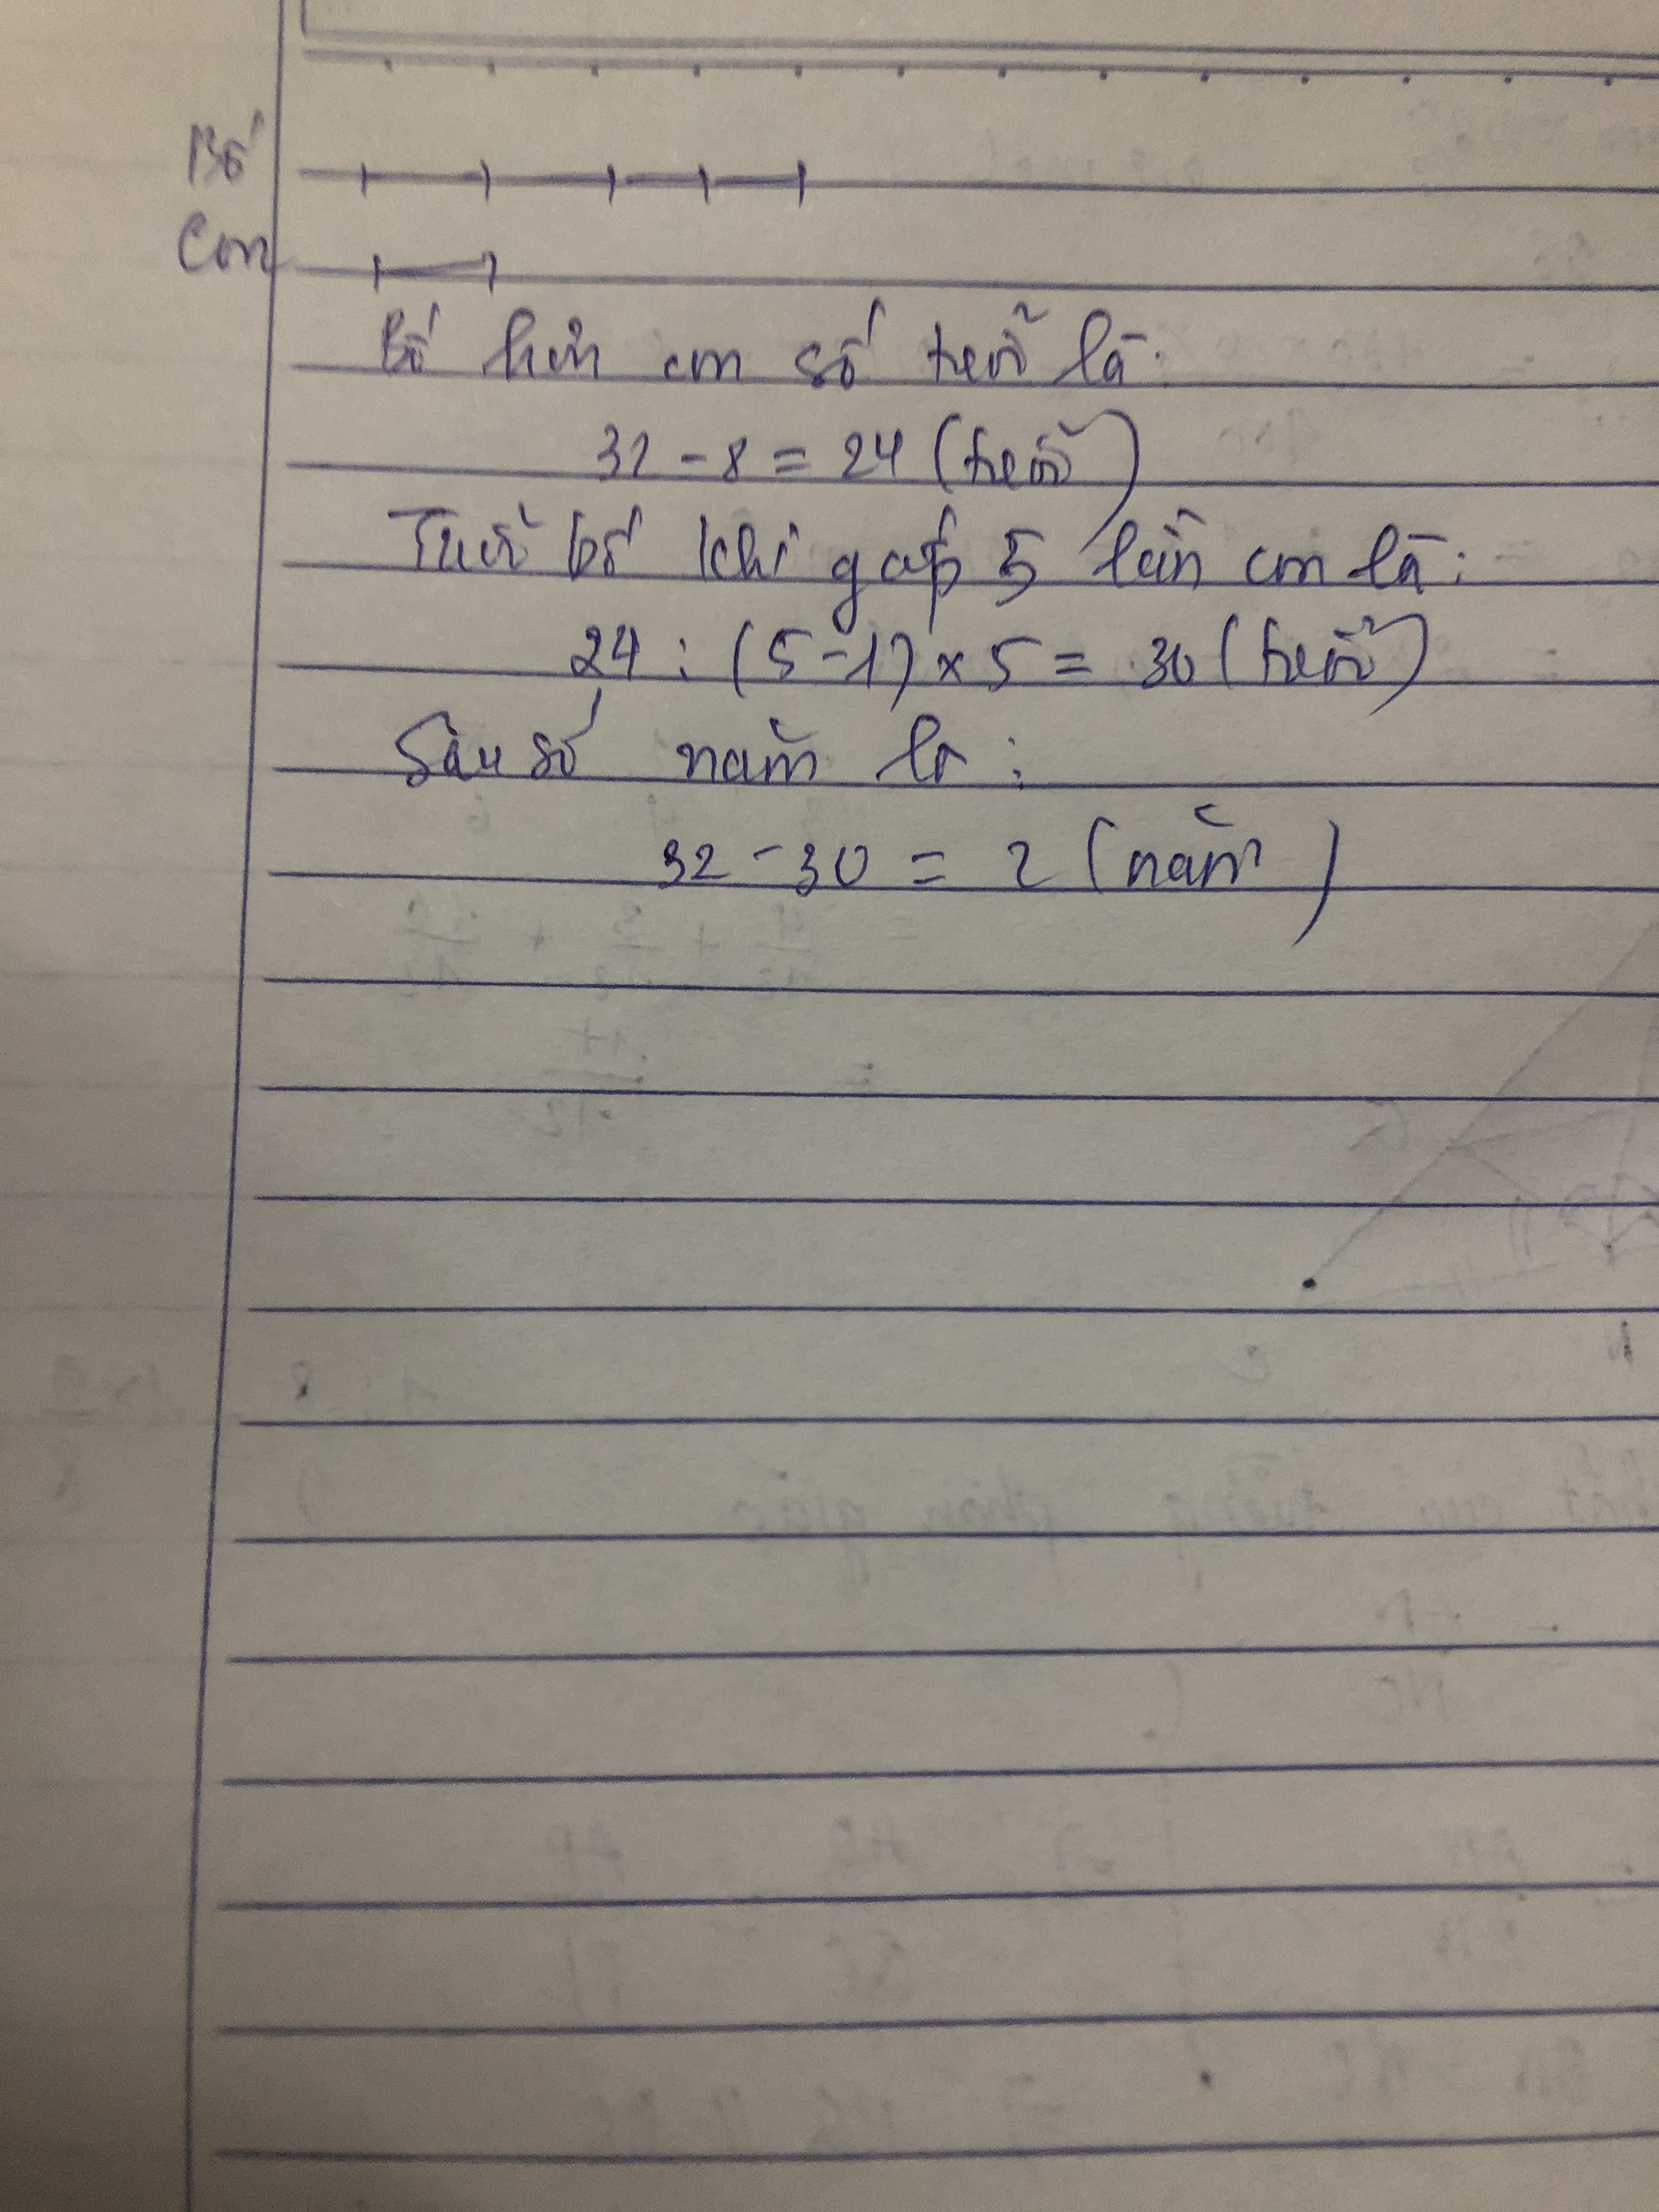 Bố
Con
Bố hơn con số tuổi là:
32 - 8 = 24 (tuổi)
Tuổi bố khi gấp 5 lần con là:
24 : (5-1) x 5 = 30 (tuổi)
Sau số năm là :
32 - 30 = 2 (năm)